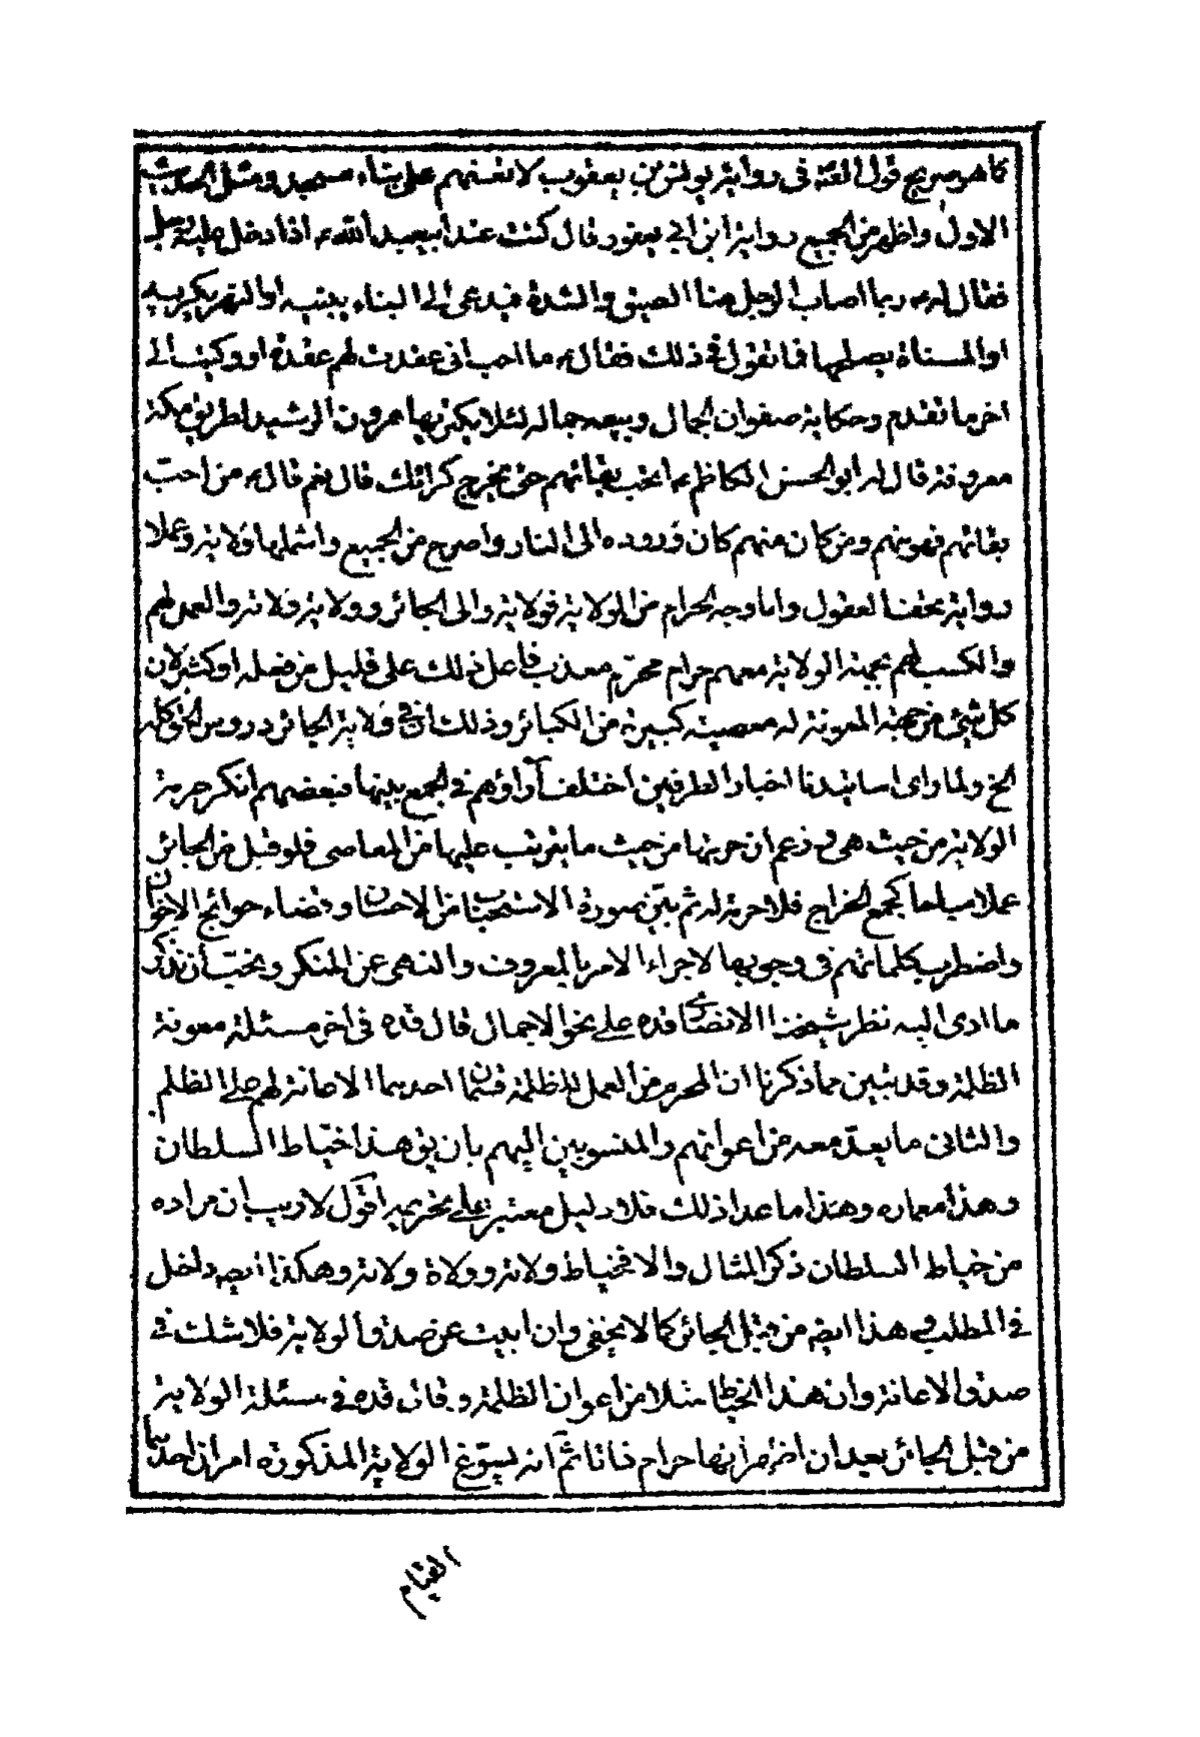 كما هو صريح قوله لثقة في رواية يونس بن يعقوب لا تعنهم على بناء مسجد ومثل الحديث
الاول واظهر من الجميع رواية ابن ابي يعفور قال كنت عند ابيعبد الله ع اذا دخل عليه رجل
فقال له ربما اصاب الرجل منا الضيق والشدة فيدعى الى البناء يبنيه او النهر يكريه
او المسناة يصلحها فما تقول في ذلك فقال ع ما احب اني عقدت لهم عقدة او وكيت الى
اخر ما تقدم وحكاية صفوان الجمال وبيعه جماله لئلا يكتريها هرون الرشيد لطريق مكة
معروفة قال له ابو الحسن الكاظم ع اتحب بقائهم حتى يخرج كرائك قال نعم قال ع من احب
بقائهم فهو منهم ومن كان منهم كان وروده الى النار واصرح من الجميع واشملها قولا وعملا
رواية تحف العقول واما وجه الحرام من الولاية فولاية والى الجائر وولاية ولاته والعمل لهم
والكسب لهم بجهة الولاية معهم حرام محرم معذب فاعل ذلك على قليل من فعله او كثير لان
كل شيئ من جهة المعونة له معصية كبيرة من الكبائر وذلك ان في ولاية الجائر دروس الحق كله
الخ ولما راى اساتيدنا اخبار الطرفين اختلف آراؤهم في الجمع بينها فبعضهم انكر حرمة
الولاية من حيث هي وزعم ان حرمتها من حيث ما يترتب عليها من المعاصي فلو قبل من الجائر
عملا مباحا كجمع الخراج فلا حرمة له ثم بين صورة الاستحباب من الاحسان وقضاء حوائج الاخوان
واضطرب كلماتهم في وجوبها لاجراء الامر بالمعروف والنهي عن المنكر ونحب أن نذكر
ما ادى اليه نظر شيخنا الانصاري قده على نحو الاجمال قال قده في اخر مسئلة معونة
الظلمة وقد تبين مما ذكرنا ان المحرم من العمل للظلمة قسمان احدهما الاعانة لهم على الظلم
والثاني ما يعد معه من اعوانهم والمنسوبين اليهم بان يق هذا خياط السلطان
وهذا معماره وهذا ما عدا ذلك فلا دليل معتبر على تحريمه اقول لا ريب ان مراده
من خياط السلطان ذكر المثال والا فخياط ولاته وولاة ولاته وهكذا ايضه داخل
في المطلب وهذا ايضه من قبل الجائر كما لا يخفى وان ابيت عن صدق الولاية فلا شك في
صدق الاعانة وان هذا الخياط مثلا من اعوان الظلمة وقال قده في مسئلة الولاية
من قبل الجائر بعد ان اختار انها حرام ذاتا ثم انه يسوغ الولاية المذكورة امران احدهما
القيام